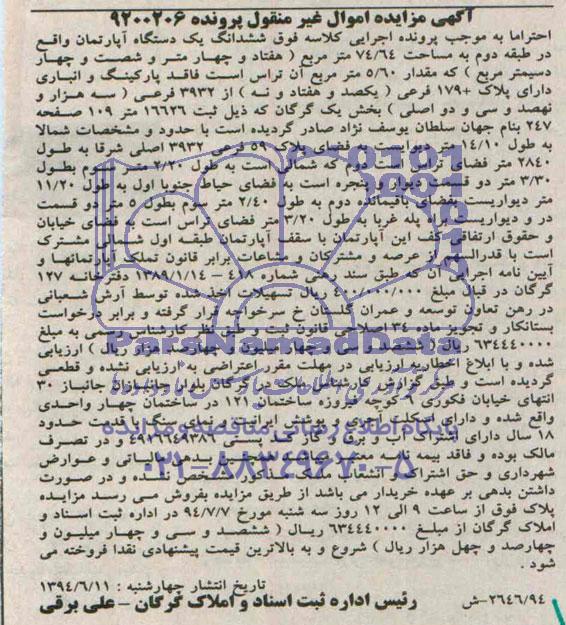 آگهی مزایده اموال غیر منقول پرونده ۹۲۰۰۲۰۶
احتراما به موجب پرونده اجرایی کلاسه فوق ششدانگ یک دستگاه آپارتمان واقع
در طبقه دوم به مساحت ۷۴/۶۴ متر مربع ( هفتاد و چهار متر و شصت و چهار
دسیمتر مربع ) که مقدار ۵/۶۰ متر مربع آن تراس است فاقد پارکینگ و انباری
دارای پلاک ۱۷۹۰ فرعی ( یکصد و هفتاد و نه ) از ۳۹۳۲ فرعی ( سه هزار و
نهصد و سی و دو اصلی ) بخش یک گرگان که ذیل ثبت ۱۶۶۲۶ متر ۱۰۹ صفحه
۲۴۷ بنام جهان سلطان یوسف نژاد صادر گردیده است با حدود و مشخصات شمالا
به طول ۱۴/۱۰ متر دیواریست به فضای پلاک ۵۹ فرعی ۳۹۳۲ اصلی شرقا به طول
۲۸۴۰ متر فضای تراس است دوم که شمالی است به طول ۲/۲۰ متر سوم بطول
۳/۳۰ متر دو قسمت دیوار و پنجره است به فضای حیاط جنوبا اول به طول ۱۱/۲۰
متر دیواریست بفضای باقیمانده دوم به طول ۲/۴۰ متر سوم بطول ۵ متر دو قسمت
در و دیواریست به راه پله غربا به طول ۳/۲۰ متر فضای تراس است به فضای خیابان
و حقوق ارتفاقی کف این آپارتمان با سقف آپارتمان طبقه اول شمالی مشترک
است با قدرالسهم از عرصه و مشترکان و مشاعات برابر قانون تملک آپارتمانها و
آیین نامه اجرایی آن که طبق سند رهنی شماره ۴۱۸ – ۱۳۸۹/۱/۱۴ دفترخانه ۱۲۷
گرگان در قبال مبلغ ۲۰۰/۰۰۰/۰۰۰ ریال تسهیلات اخذ شده توسط آرش شعبانی
در رهن تعاون توسعه و عمران گلستان خ سرخواجه قرار گرفته و برابر درخواست
بستانکار و تجویز ماده ۳۴ اصلاحی قانون ثبت و طبق نظر کارشناس رسمی به مبلغ
۶۳۴۴۴۰۰۰۰ ریال ( ششصد و سی و چهار میلیون و چهارصد هزار ریال ) ارزیابی
شده و با ابلاغ اخطاریه ارزیابی در مهلت مقرر اعتراضی به ارزیابی نشده و قطعی
گردیده است و طبق گزارش کارشناس ملک در گرگان بلوار جانبازان جانباز ۳۰
انتهای خیابان فکوری ۹ کوچه فیروزه ساختمان ۱۲۱ در ساختمان چهار واحدی
واقع شده و دارای اسکلت آجری و پوشش ایرانیت و نمای سنگ با قدمت حدود
۱۸ سال دارای اشتراک آب و برق و گاز کد پستی ۴۹۱۶۶۴۹۳۸۶ و در تصرف
مالک بوده و فاقد بیمه نامه معتبر بدهی مالیاتی و عوارض
شهرداری و حق اشتراک و انشعاب ملک مذکور مشخص نشده و در صورت
داشتن بدهی بر عهده خریدار می باشد از طریق مزایده بفروش می رسد مزایده
پلاک فوق از ساعت ۹ الی ۱۲ روز سه شنبه مورخ ۹۴/۷/۷ در اداره ثبت اسناد و
املاک گرگان از مبلغ ۶۳۴۴۴۰۰۰۰ ریال ( ششصد و سی و چهار میلیون و
چهارصد و چهل هزار ریال ) شروع و به بالاترین قیمت پیشنهادی نقدا فروخته می
شود .
تاریخ انتشار چهارشنبه : ۱۳۹۴/۶/۱۱
رئیس اداره ثبت اسناد و املاک گرگان – علی برقی
۲۶۴۶/۹۴–ش
ParsNamadData
پایگاه اطلاع رسانی مناقصه و مزایده
۰۲۱–۸۸۳۴۹۶۷۰–۵